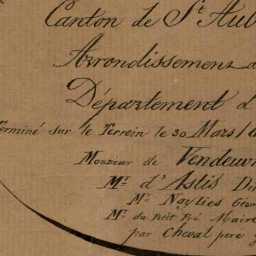 Canton de St. Aub
Arrondissement d
Département d
Terminé sur le Terrein le 30 Mars 1
Monsieur de Vendeuvr
Mr. d'Astis Di
Mr. Noylies Géom
Mr. du Maire
par Cheval pere